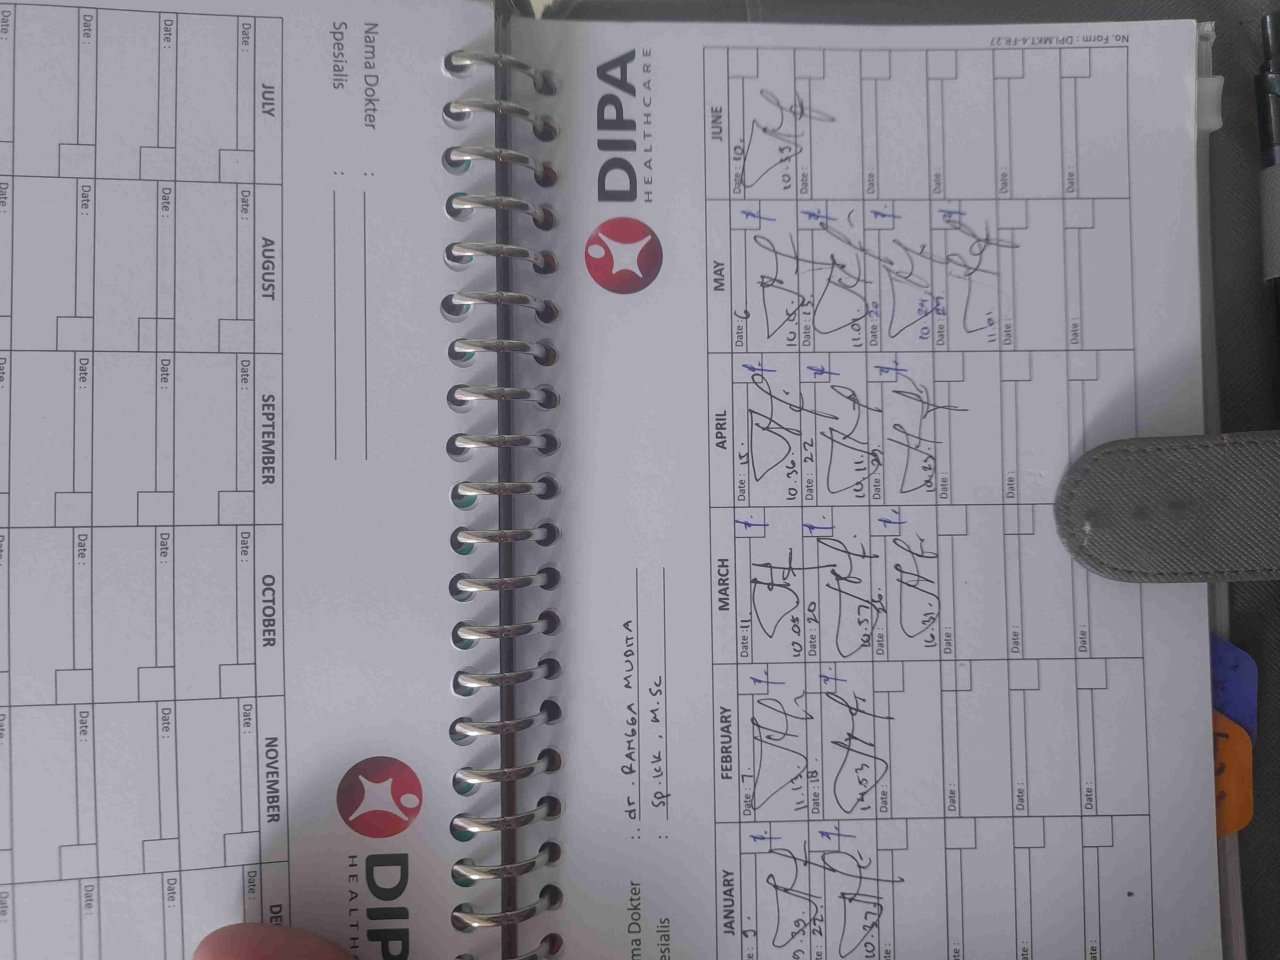 No. Form : DPI.MKT.4-FR.27
DIPA
HEALTHCARE
ma Dokter : dr. RANGGA MUDITA
esialis : Sp.KK, M.Sc
JANUARY FEBRUARY MARCH APRIL MAY JUNE
e : 9. Date : 7. Date : 11. Date : 15. Date : 6 Date : 10.
9.39. 11.13. 10.05 10.36. 10.15. 10.39
22. Date : 18. Date : 20 Date : 22 Date : 15. Date :
10.32 14.53 10.57 10.11. 11.01. 
Date : Date : 26. Date : 29. Date : 20 Date :
16.31. 10.23. 10.24
Date : Date : Date : Date :
11.01
Date : Date : Date : Date : Date :
Date : Date : Date : Date :
Nama Dokter :
Spesialis :
DIP
HEALTH
JULY AUGUST SEPTEMBER OCTOBER NOVEMBER DE
Date : Date : Date : Date : Date : Date :
Date : Date : Date : Date : Date : Date :
Date : Date : Date : Date : Date : Date :
Date : Date : Date : Date : Date : Date :